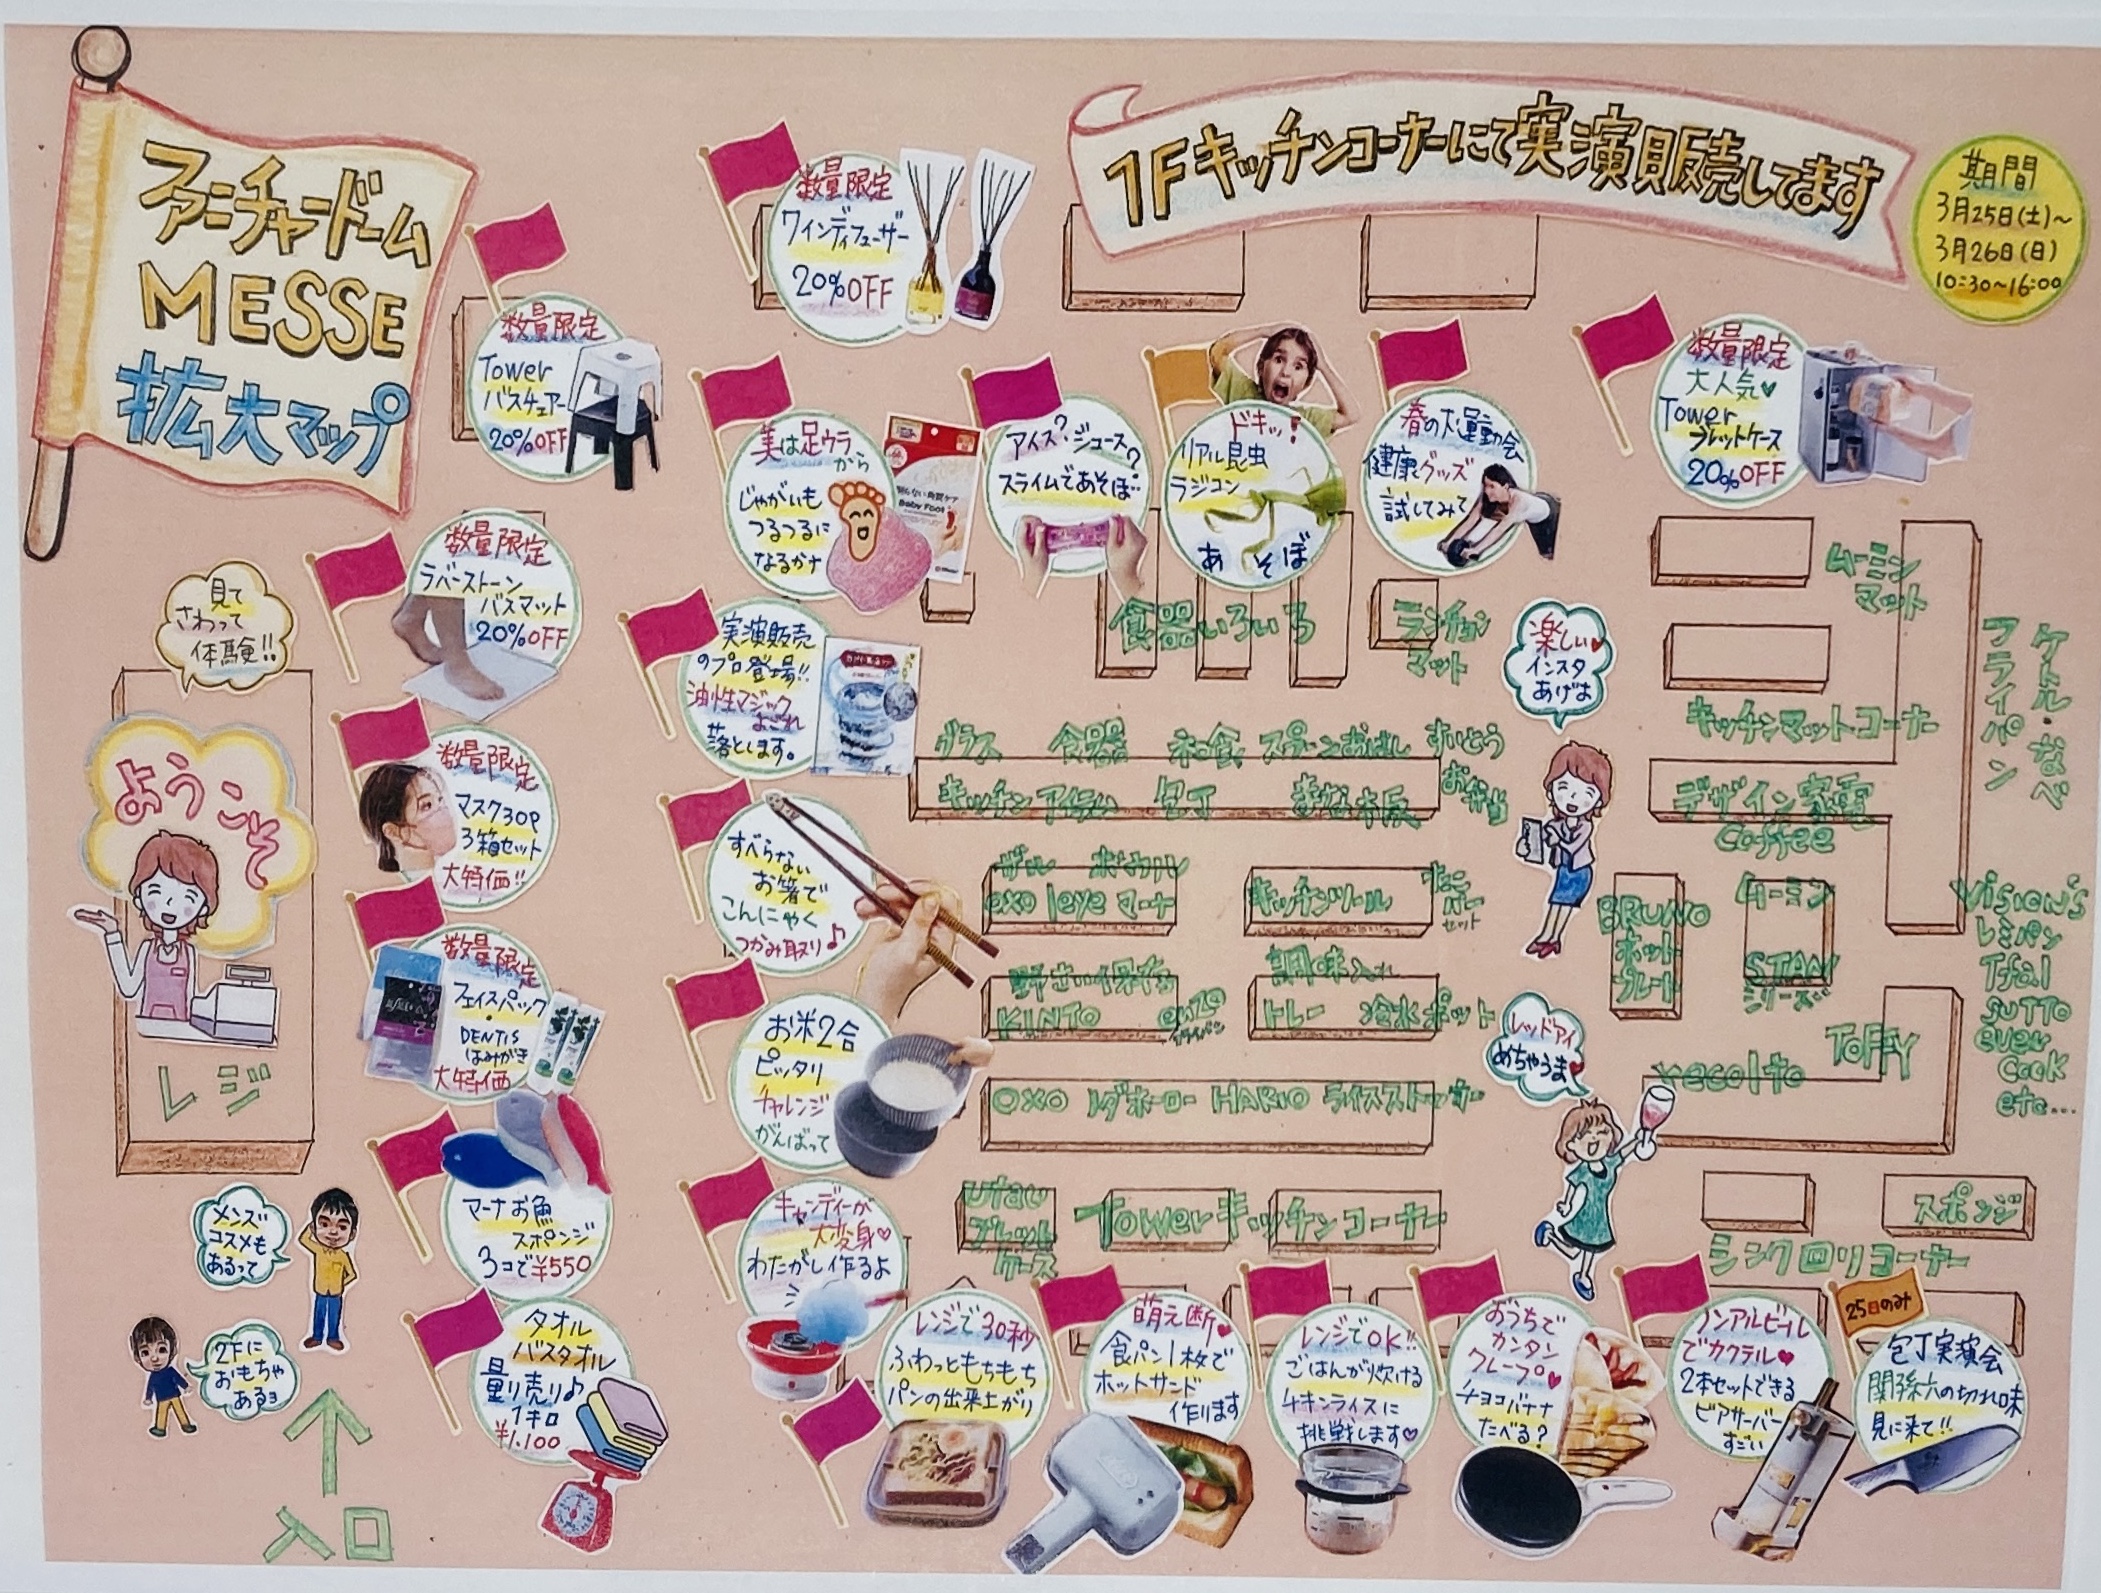 ファニチャードーム
MESSE
拡大マップ
1Fキッチンコーナーにて実演販売してます
期間
3月25日(土)～
3月26日(日)
10:30～16:00
数量限定
ワインディフューザー
20%OFF
数量限定
Tower
バスチェアー
20%OFF
美は足ウラ
から
じゃがいも
つるつるに
なるかナ
Baby Foot
アイス?ジュース?
スライムであそぼ
ドキッ!
リアル昆虫
ラジコン
あそぼ
春の大運動会
健康グッズ
試してみて
数量限定
大人気♥
Tower
ブレットケース
20%OFF
数量限定
ラバーストーン
バスマット
20%OFF
見て
さわって
体験!!
ようこそ
レジ
実演販売
のプロ登場!!
油性マジック
よごれ
落とします。
食器いろいろ
ランチョン
マット
楽しい♥
インスタ
あげよ
ムーミン
マット
キッチンマットコーナー
ケトル・なべ
フライパン
数量限定
マスク30P
3箱セット
大特価!!
すべらない
お箸で
こんにゃく
つかみ取り♪
グラス 食器 和食 スプーンおはし すいとう
キッチンアイテム 包丁 まな板
お弁当
ザル ボウル
oxo leye マーナ
キッチンツール
セット
デザイン家電
Coffee
BRUNO
ホット
プレート
ムーミン
STAN
シリーズ
VISION'S
レミパン
Tfal
SUTTO
ever
cook
etc...
数量限定
フェイスパック
・
DENTIS
はみがき
大特価
お米2合
ピッタリ
チャレンジ
がんばって
野さい保存
KINTO enzo
フライパン
調味入れ
トレー 冷水ポット
レッドアイ
めちゃうま♥
TOFFY
recolto
OXO ノダホーロー HARIO ライスストッカー
メンズ
コスメも
あるって
2Fに
おもちゃ
あるヨ
入口
マーナお魚
スポンジ
3コで¥550
タオル
バスタオル
量り売り♪
1キロ
¥1.100
キャンディーが
大変身♥
わたがし作るよ
utau
ブレット
ケース
Towerキッチンコーナー
スポンジ
シンク回りコーナー
レンジで30秒
ふわっともちもち
パンの出来上がり
萌え断♥
食パン1枚で
ホットサンド
作ります
レンジでOK!!
ごはんが炊ける
チキンライスに
挑戦します♡
おうちで
カンタン
クレープ♥
チョコバナナ
たべる?
ノンアルビール
でカクテル♥
2本セットできる
ビアサーバー
すごい
25日のみ
包丁実演会
関孫六の切れ味
見に来て!!